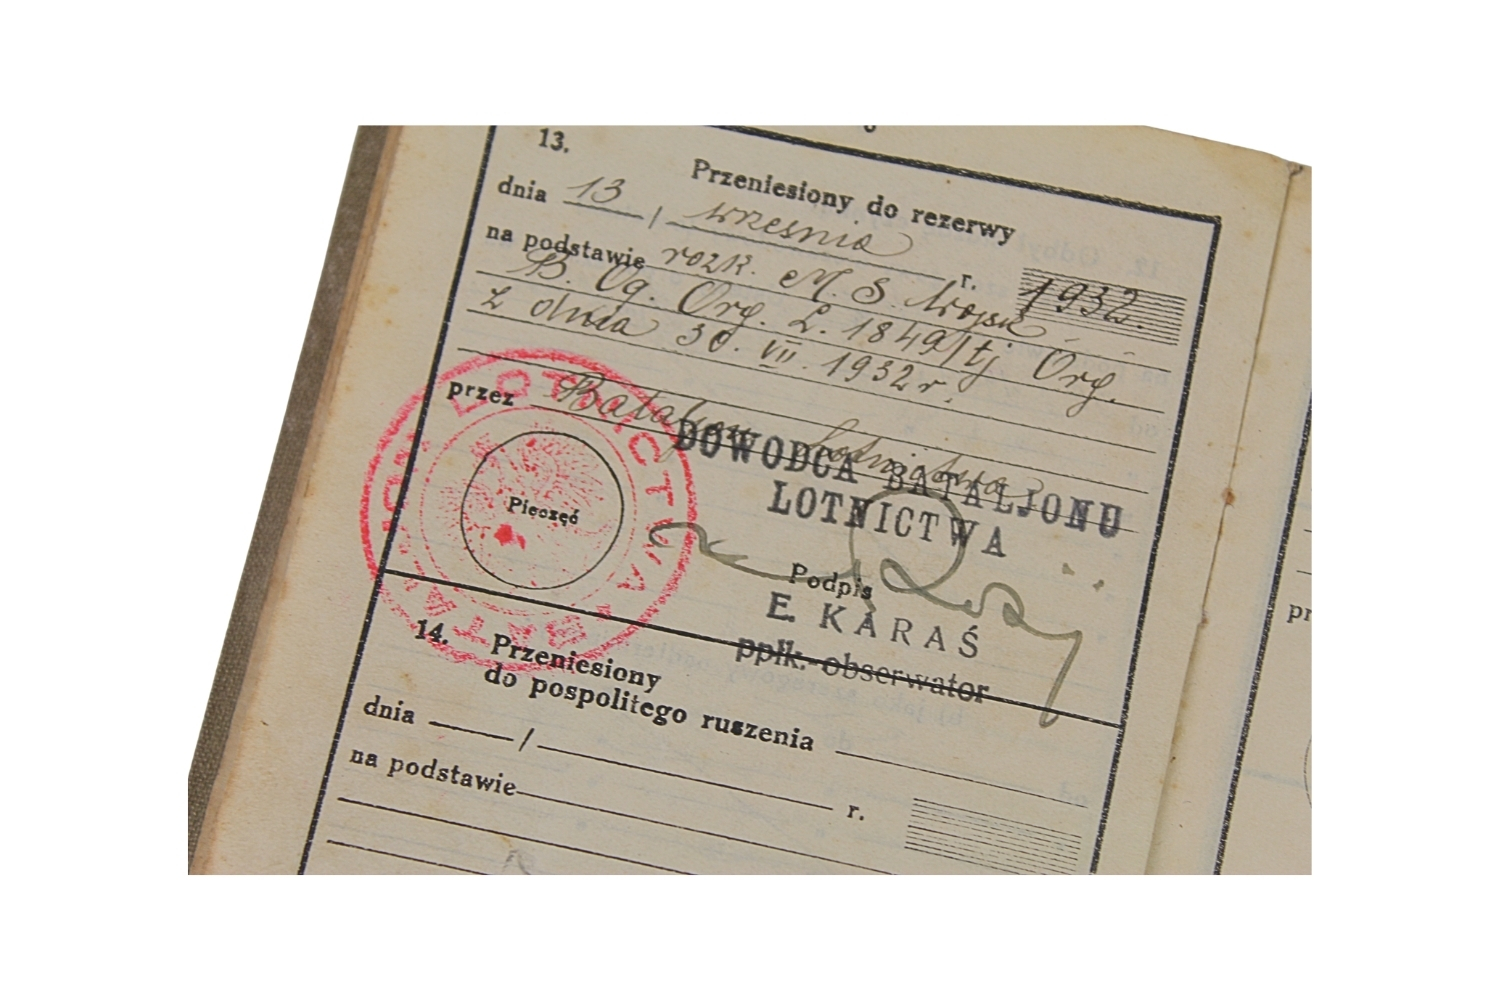 13.
Przeniesiony do rezerwy
dnia 13 / września r. 1932.
na podstawie rozk. M. S. Wojsk
B. Og. Org. L. 1849/tj Org.
z dnia 30. VII. 1932 r.
przez Bataljon Lotnictwa
DOWODCA BATALJONU
LOTNICTWA
Pieczęć
Podpis
E. KARAŚ
ppłk.-obserwator
LOTNICTWA
14.
Przeniesiony
do pospolitego ruszenia
dnia / r.
na podstawie
pr